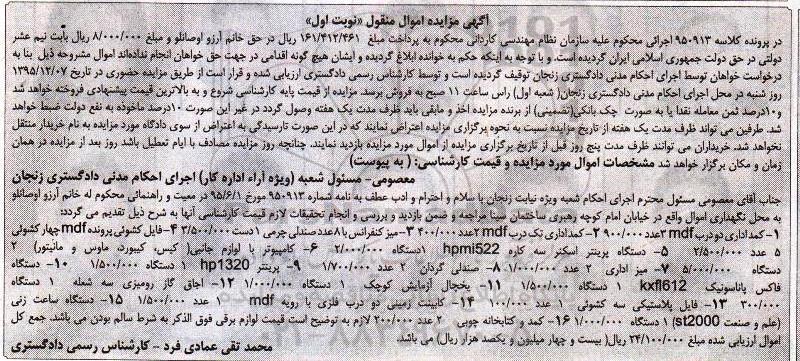 آگهی مزایده اموال منقول «نوبت اول»
در پرونده کلاسه ۹۵۰۹۱۳ اجرائی محکوم علیه سازمان نظام مهندسی کاردانی محکوم به پرداخت مبلغ ۱۶۱/۴۱۲/۴۶۱ ریال در حق خانم آرزو اوصانلو و مبلغ ۸/۰۰۰/۰۰۰ ریال بابت نیم عشر
دولتی در حق دولت جمهوری اسلامی ایران گردیده است. و با توجه به اینکه حکم به خوانده ابلاغ گردیده و ایشان هیچ گونه اقدامی در جهت حق خواهان انجام نداده‌اند اموال مشروحه ذیل بنا به
درخواست خواهان توسط اجرای احکام مدنی دادگستری زنجان توقیف گردیده است و توسط کارشناس رسمی دادگستری ارزیابی شده و قرار است از طریق مزایده حضوری در تاریخ ۱۳۹۵/۱۲/۰۷
روز شنبه در محل اجرای احکام مدنی دادگستری زنجان( شعبه اول) راس ساعت ۱۱ صبح به فروش برسد. مزایده از قیمت پایه کارشناسی شروع و به بالاترین قیمت پیشنهادی فروخته خواهد شد
و۱۰درصد ثمن معامله نقدا یا به صورت چک بانکی(تضمینی) از برنده مزایده اخذ و مابقی باید ظرف مدت یک هفته وصول گردد در غیر این صورت ۱۰درصد ماخوذه به نفع دولت ضبط خواهد
شد. طرفین می تواند ظرف مدت یک هفته از تاریخ مزایده نسبت به نحوه برگزاری مزایده اعتراض نمایند که در این صورت تارسیدگی به اعتراض از سوی دادگاه مورد مزایده به نام خریدار منتقل
نخواهد شد. خریداران می توانند ظرف مدت پنج روز قبل از تاریخ برگزاری مزایده از اموال مورد مزایده بازدید نمایند. چنانچه روز مزایده مصادف با ایام تعطیل باشد روز بعد از مزایده در همان
زمان و مکان برگزار خواهد شد مشخصات اموال مورد مزایده و قیمت کارشناسی: ( به پیوست)
معصومی- مسئول شعبه (ویژه آراء اداره کار) اجرای احکام مدنی دادگستری زنجان
جناب آقای معصومی مسئول محترم اجرای احکام شعبه ویژه نیابت زنجان با سلام و احترام و ادب عطف به نامه شماره ۹۵۰۹۱۳ مورخ ۹۵/۶/۱ در معیت و راهنمائی محکوم له خانم آرزو اوصانلو
به محل نگهداری اموال واقع در خیابان امام کوچه رهبری ساختمان سینا مراجعه و ضمن بازدید و بررسی و انجام تحقیقات لازم قیمت کارشناسی آنها به شرح ذیل تقدیم می گردد:
۱- کمد اداری دو درب mdf ۳عدد ۹۰۰/۰۰۰ ۲-کمداداری تک درب mdf ۲عدد ۴۰۰/۰۰۰ ۳-میز کنفرانس با ۸عدد صندلی چرمی ۱دست ۳/۵۰۰/۰۰۰ ۴-فایل کشوئی پرونده mdf چهار کشوئی
۵ عدد ۲/۵۰۰/۰۰۰ ۵- دستگاه پرینتر اسکنر سه کاره hpmi522 ۱دستگاه ۲/۰۰۰/۰۰۰ ۶- کامپیوتر با لوازم جانبی( کیس، کیبورد، ماوس و مانیتور) ۲
دستگاه ۵/۰۰۰/۰۰۰ ۷- میز اداری ۲ عدد ۱/۰۰۰/۰۰۰ ۸- صندلی گردان ۲ عدد ۱/۷۰۰/۰۰۰ ۹- پرینتر hp1320 ۱ دستگاه ۱/۵۰۰/۰۰۰ ۱۰- دستگاه
فاکس پاناسونیک kxfl612 ۱ دستگاه ۱/۵۰۰/۰۰۰ ۱۱- یخچال آزمایش کوچک ۱ دستگاه ۱/۰۰۰/۰۰۰ ۱۲- اجاق گاز رومیزی سه شعله ۱ دستگاه
۳۰۰/۰۰۰ ۱۳- فایل پلاستیکی سه کشوئی ۱ عدد ۱۰۰/۰۰۰ ۱۴- کابینت زمینی دو درب فلزی با رویه mdf ۱ عدد ۱/۵۰۰/۰۰۰ ۱۵- دستگاه ساعت زنی
(علم و صنعت st2000) ۱ دستگاه ۱/۰۰۰/۰۰۰ ۱۶- کمد و کتابخانه چوبی ۲ عدد ۲۰۰/۰۰۰ لازم به توضیح است قیمت لوازم برقی فوق الذکر به شرط سالم بودن می باشد. جمع کل
اموال ارزیابی شده مبلغ ۲۴/۱۰۰/۰۰۰ ریال( بیست و چهار میلیون و یکصد هزار ریال) می باشد.
محمد تقی عمادی فرد - کارشناس رسمی دادگستری